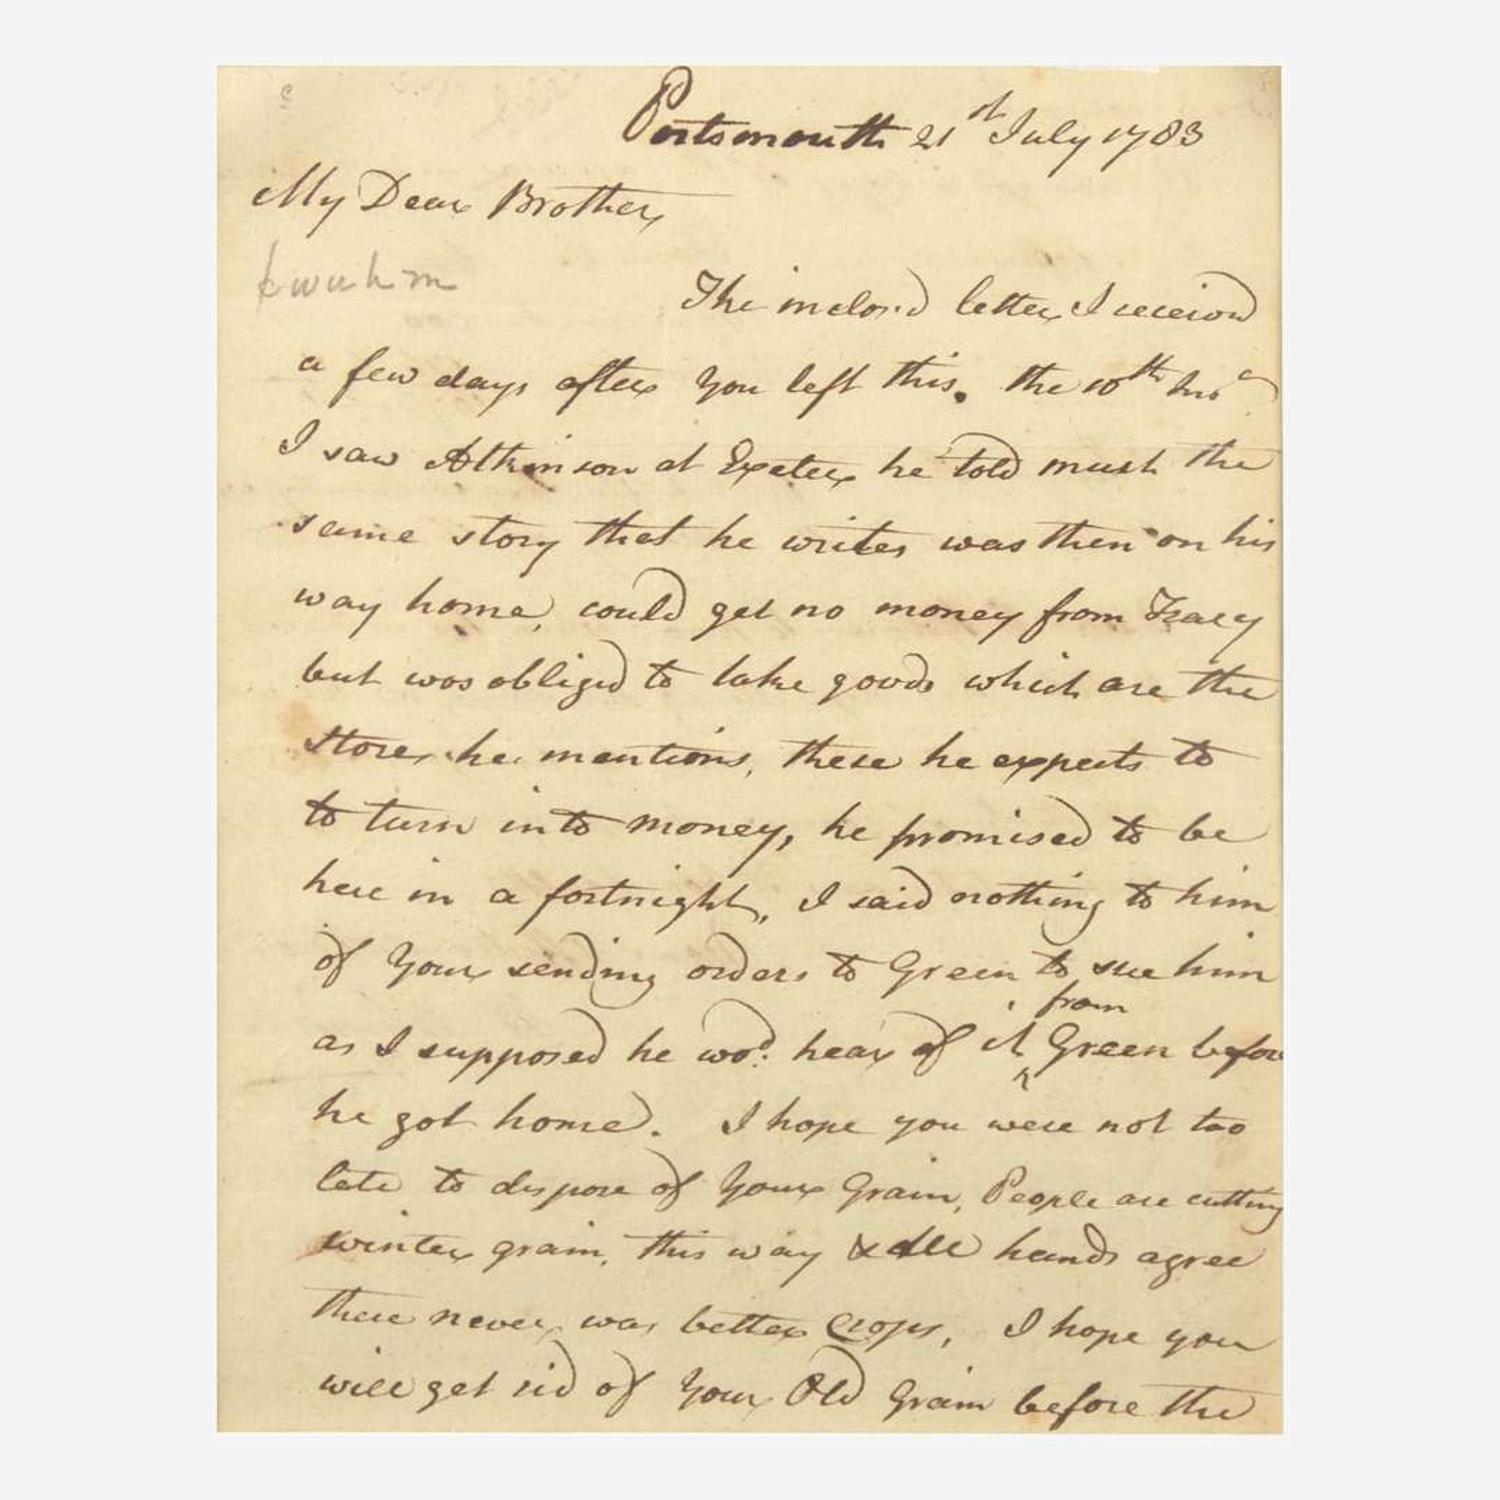 Portsmouth 21st July 1783
My Dear Brother
The inclos'd letter I receivd
a few days after you left this. the 10th
I saw Atkinson at Exeter he told much the
same story that he writes was then on his
way home, could get no money from Tracy
but was obliged to take goods which are the
stores he mentions, these he expects to
to turn into money, he promised to be
here in a fortnight, I said nothing to him
of Your sending orders to Green to see him
as I supposed he wod: hear of it from Green before
he got home. I hope you were not too
late to dispose of Your Grain, People are cutting
winter grain, this way & all hands agree
there never was better Crops, I hope you
will get rid of Your Old Grain before the